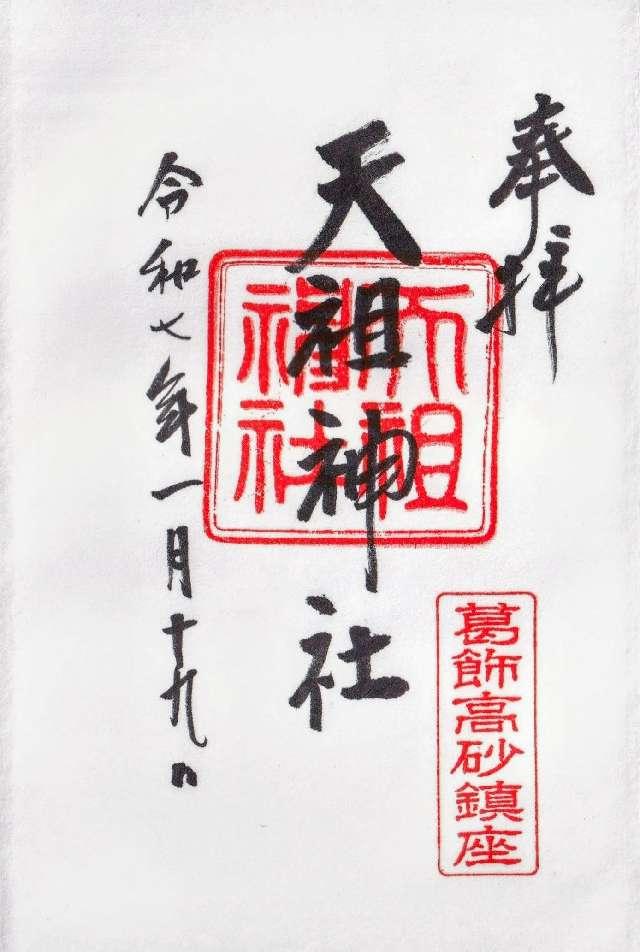 奉拝
天祖神社
天祖神社
葛飾高砂鎮座
令和七年一月十九日